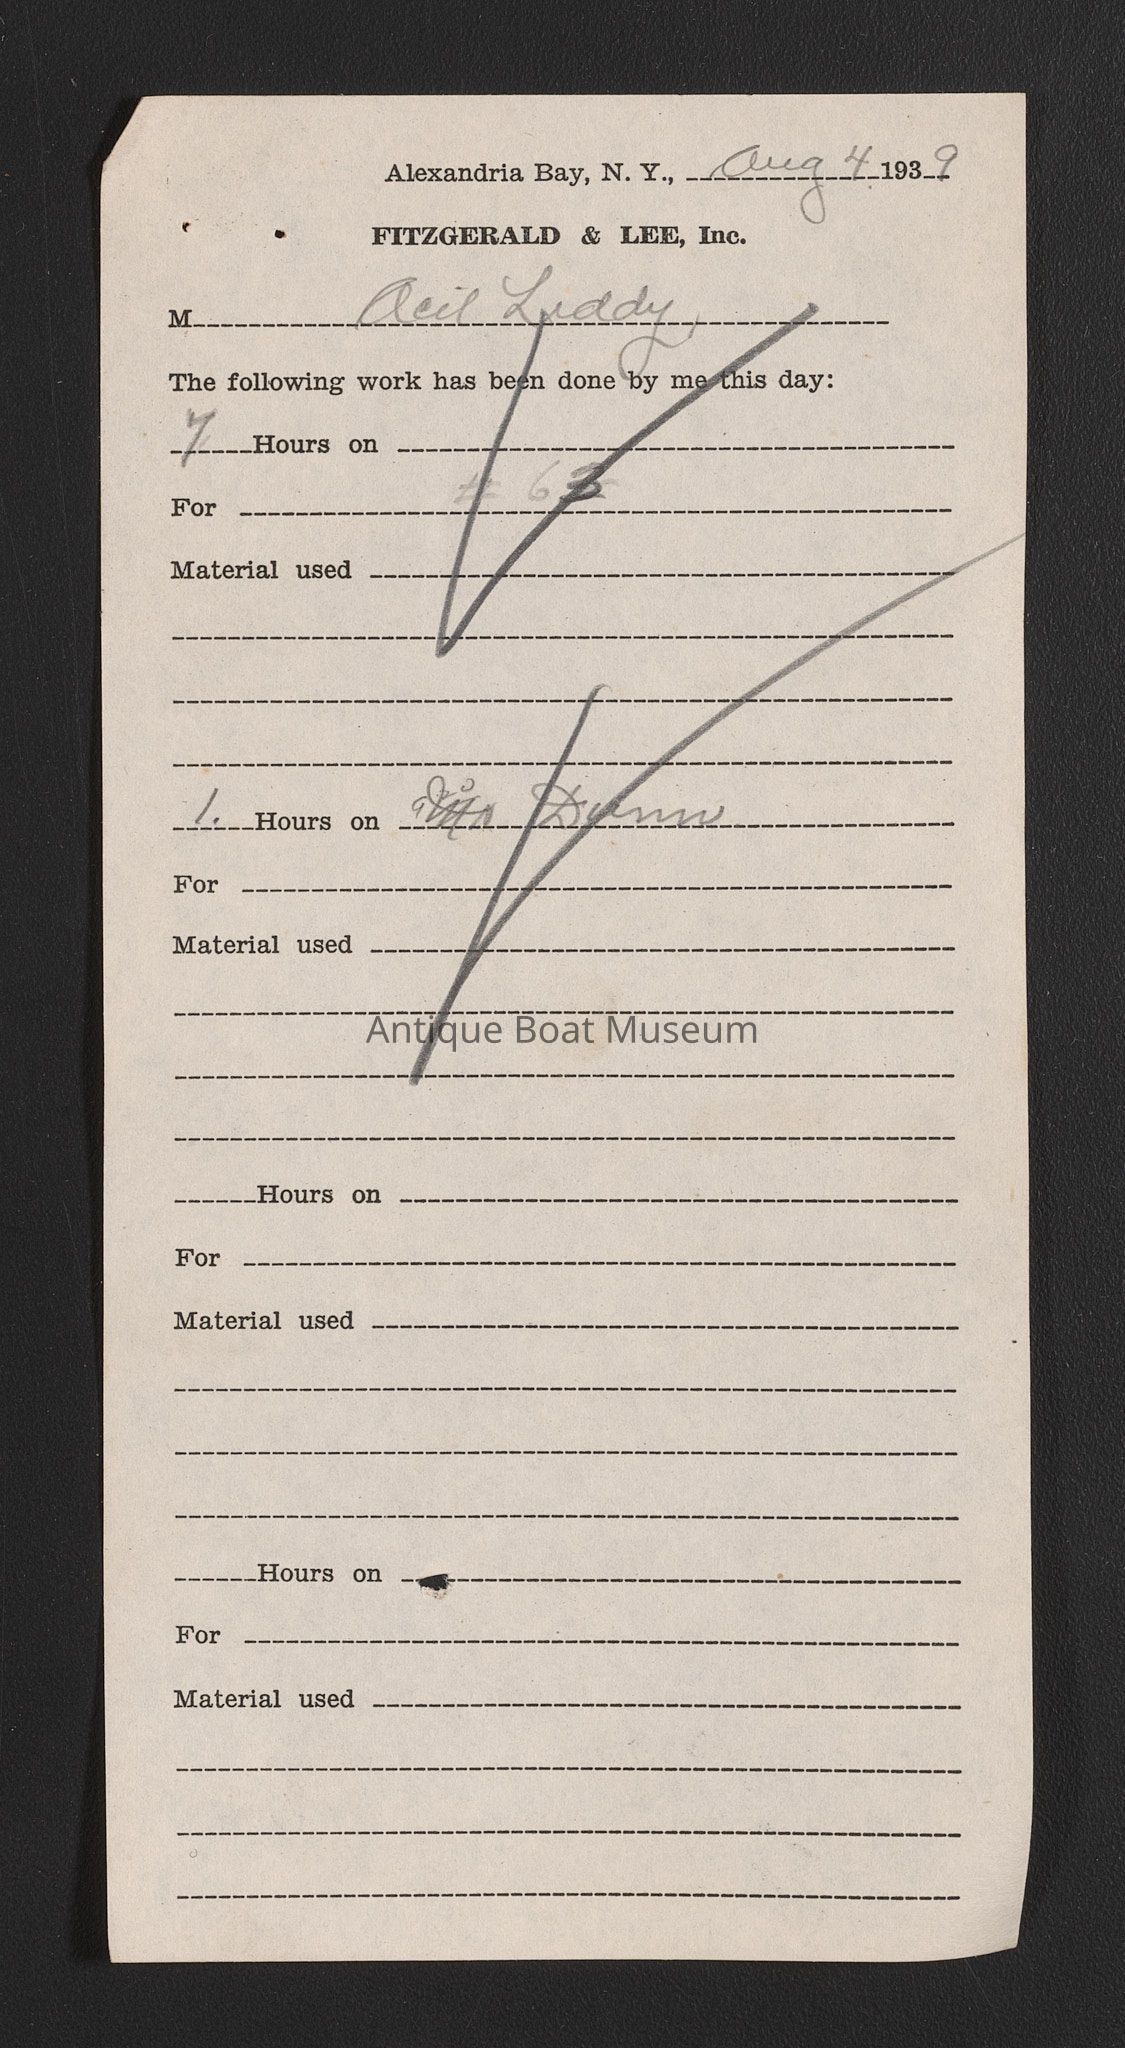 Alexandria Bay, N. Y., Aug 4 1939
FITZGERALD & LEE, Inc.
M Leddy
The following work has been done by me this day:
7 Hours on
For # 63
Material used
1. Hours on Dunn
For
Material used
Antique Boat Museum
Hours on
For
Material used
Hours on
For
Material used